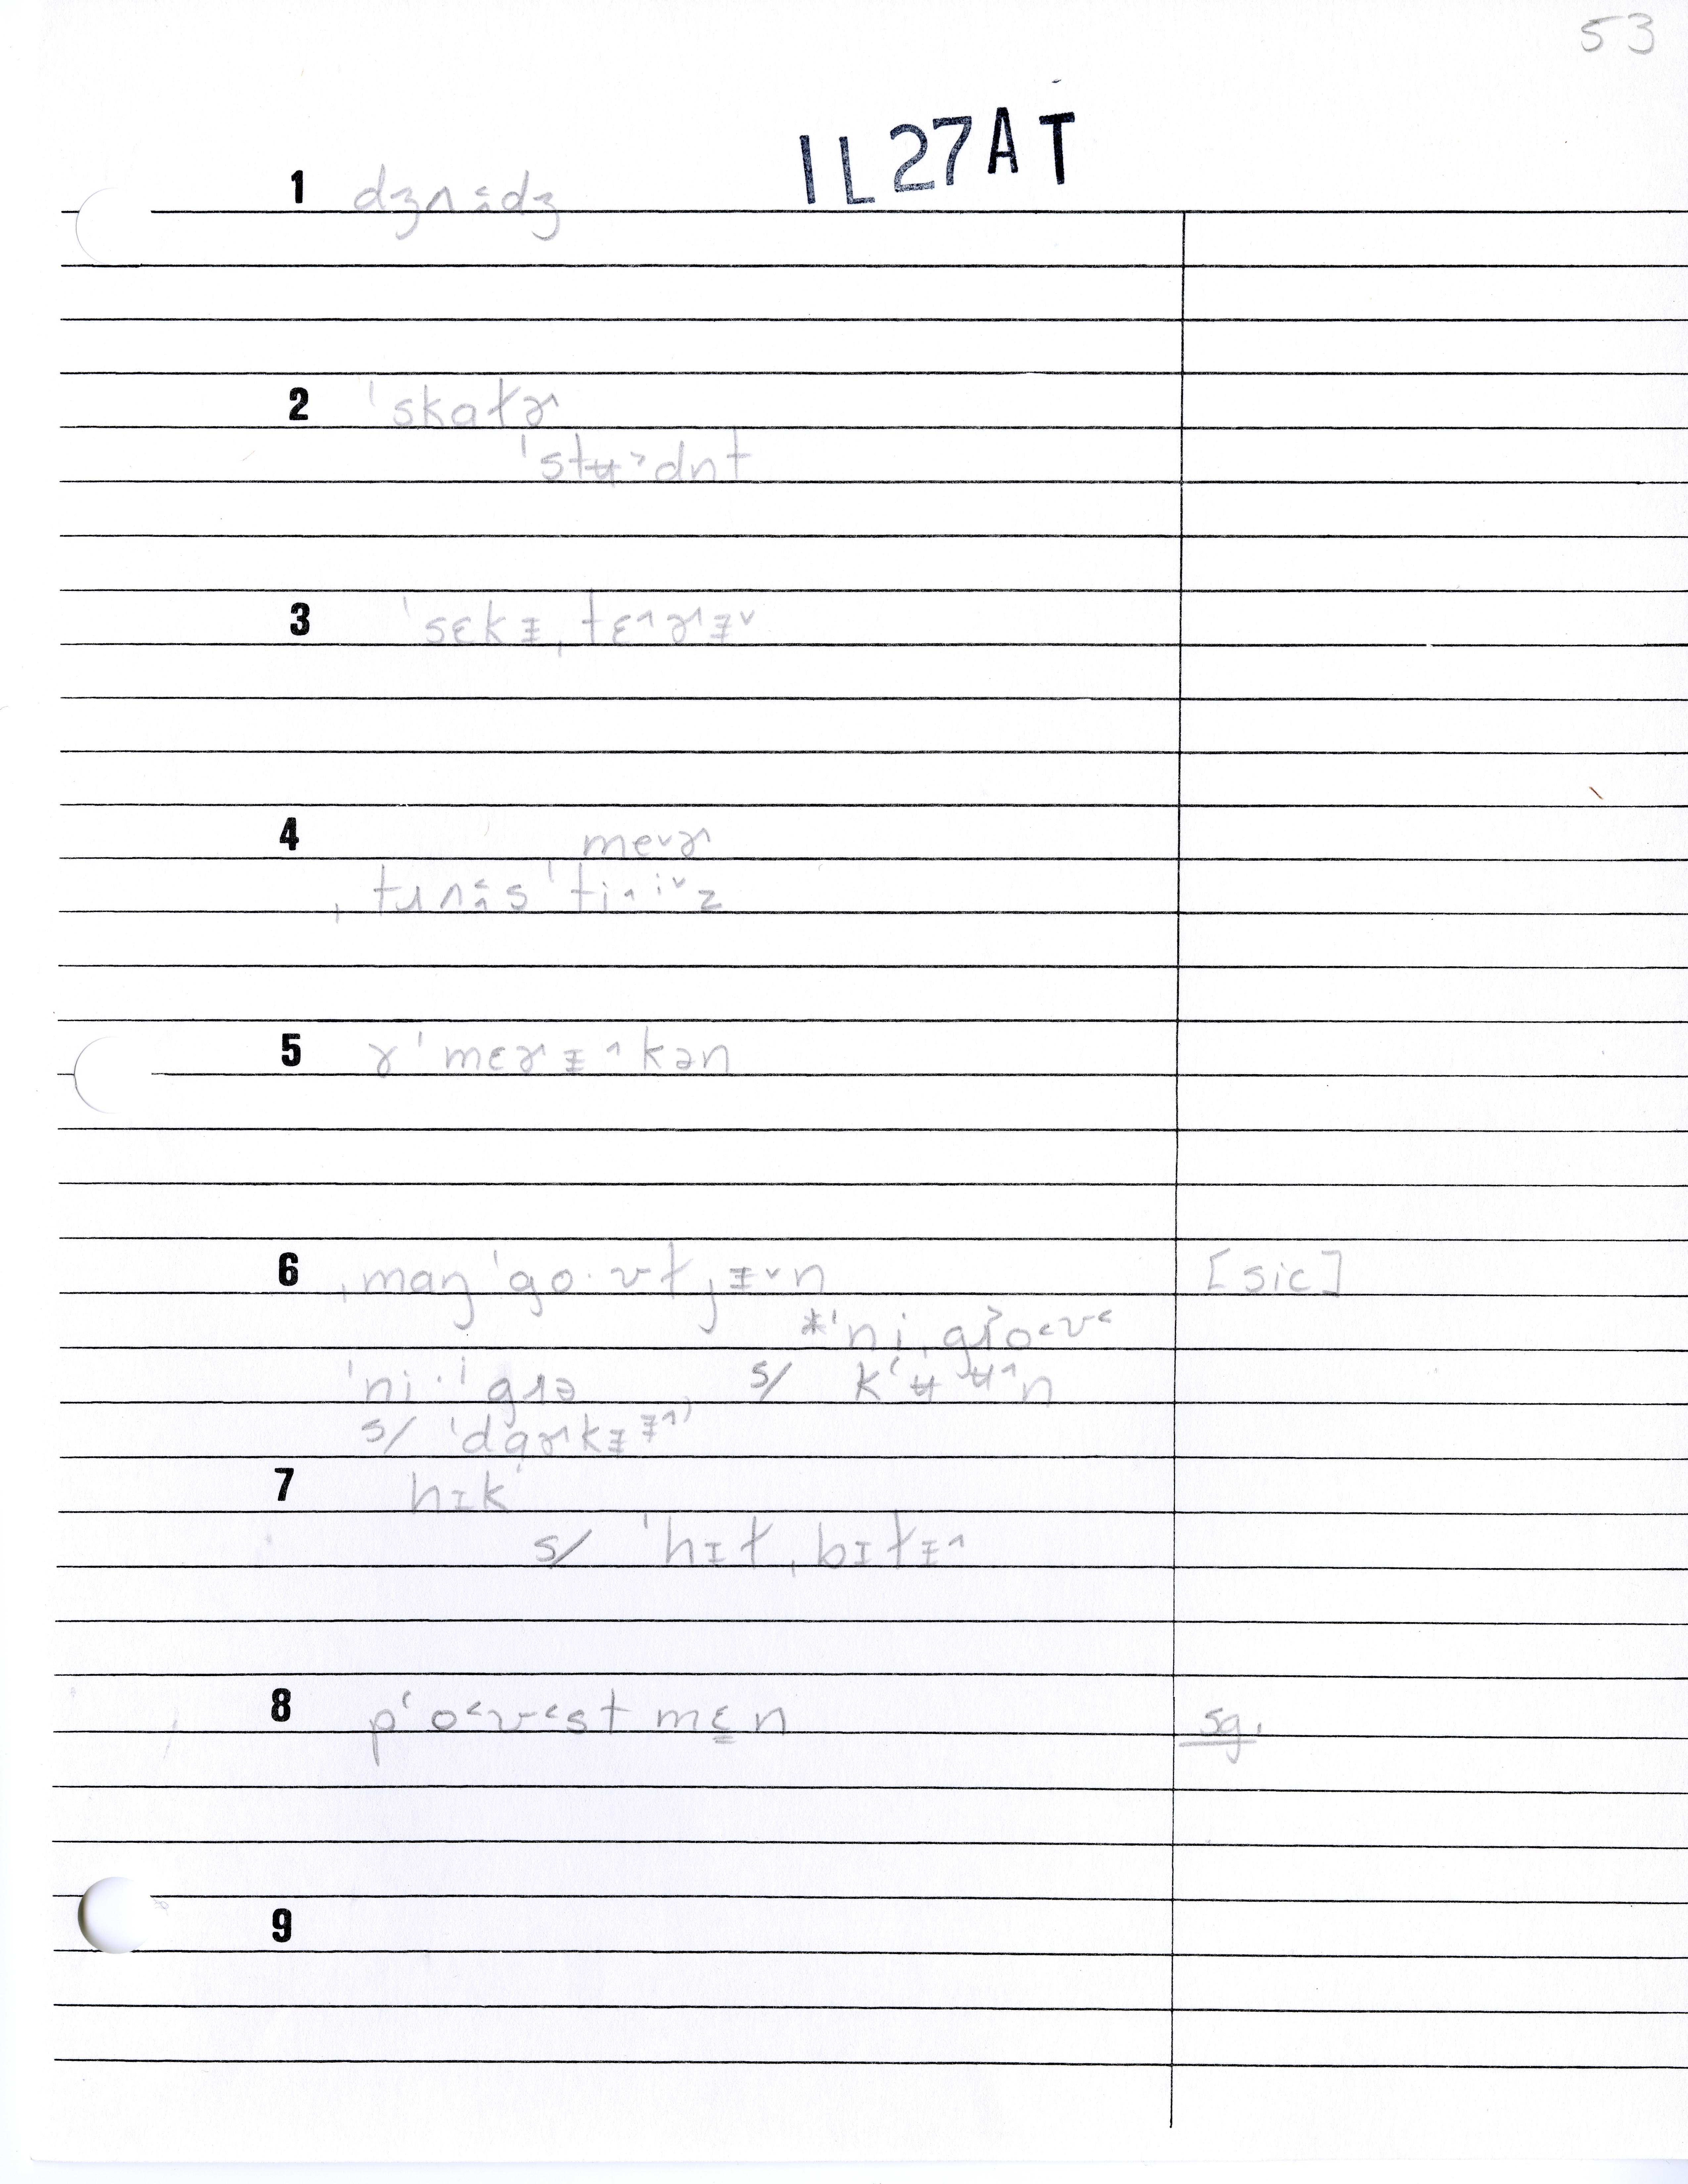 53
IL27AT
1 dʒʌ˂̭dʒ
2 ˈskɑtɚ
ˈstʉ˃dnt
3 ˈsɛkᵻˌtɛ˄ɚᵻ˅
4 me˅ɚ
ˌtɹʌ˂̭sˈti˄ⁱ˅z
5 ɚˈmɛɚᵻ˄kən
6 ˌmaŋˈgo·ʊtˌᵻ˅n [sic]
*ˈniˌgɹ̌o˂ʊ˂
ˈni·ⁱgɹə s/ kʻʉᵘ̶˄n
s/ ˈdɑɚkᵻᵻ˄
7 hɪk
s/ ˈhɪtˌbɪtᵻ˄
8 pʻo˂ʊ˂stmɛ̲n sg.
9